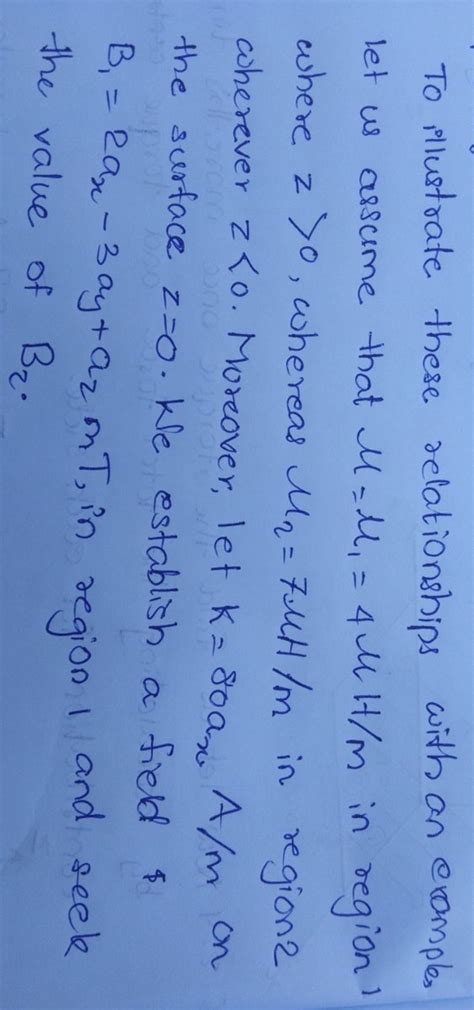 To illustrate these relationships with an example,
let us assume that μ = μ₁ = 4 μH/m in region 1
where z > 0, whereas μ₂ = 7μH/m in region 2
wherever z < 0. Moreover, let K = 80aₓ A/m on
the surface z = 0. We establish a field
B₁ = 2aₓ - 3ay + az mT, in region 1 and seek
the value of B₂.